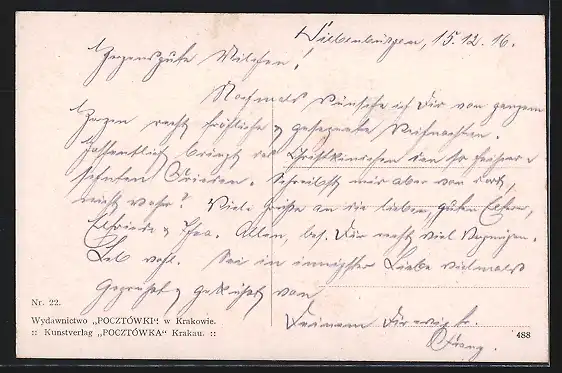 Siebenbürgen, 15.12.16.
Herzensgute Milchen!
Nochmals wünsche ich Dir von ganzem
Herzen recht fröhliche & gesegnete Weihnachten.
Hoffentlich bringt das Christkindchen den so heißer-
sehnten Frieden. Schreibst mir aber von dort,
nicht wahr? Viele Grüße an die lieben, guten Eltern,
Elfriede & Allen, bes. Dir recht viel Vergnügen.
Leb wohl. Sei in innigster Liebe vielmals
Gegrüßt & geküsst von
Deinem Dir ewig tr.
Franz.
Nr. 22.
Wydawnictwo „POCZTÓWKI" w Krakowie.
:: Kunstverlag „POCZTÓWKA" Krakau. ::
488